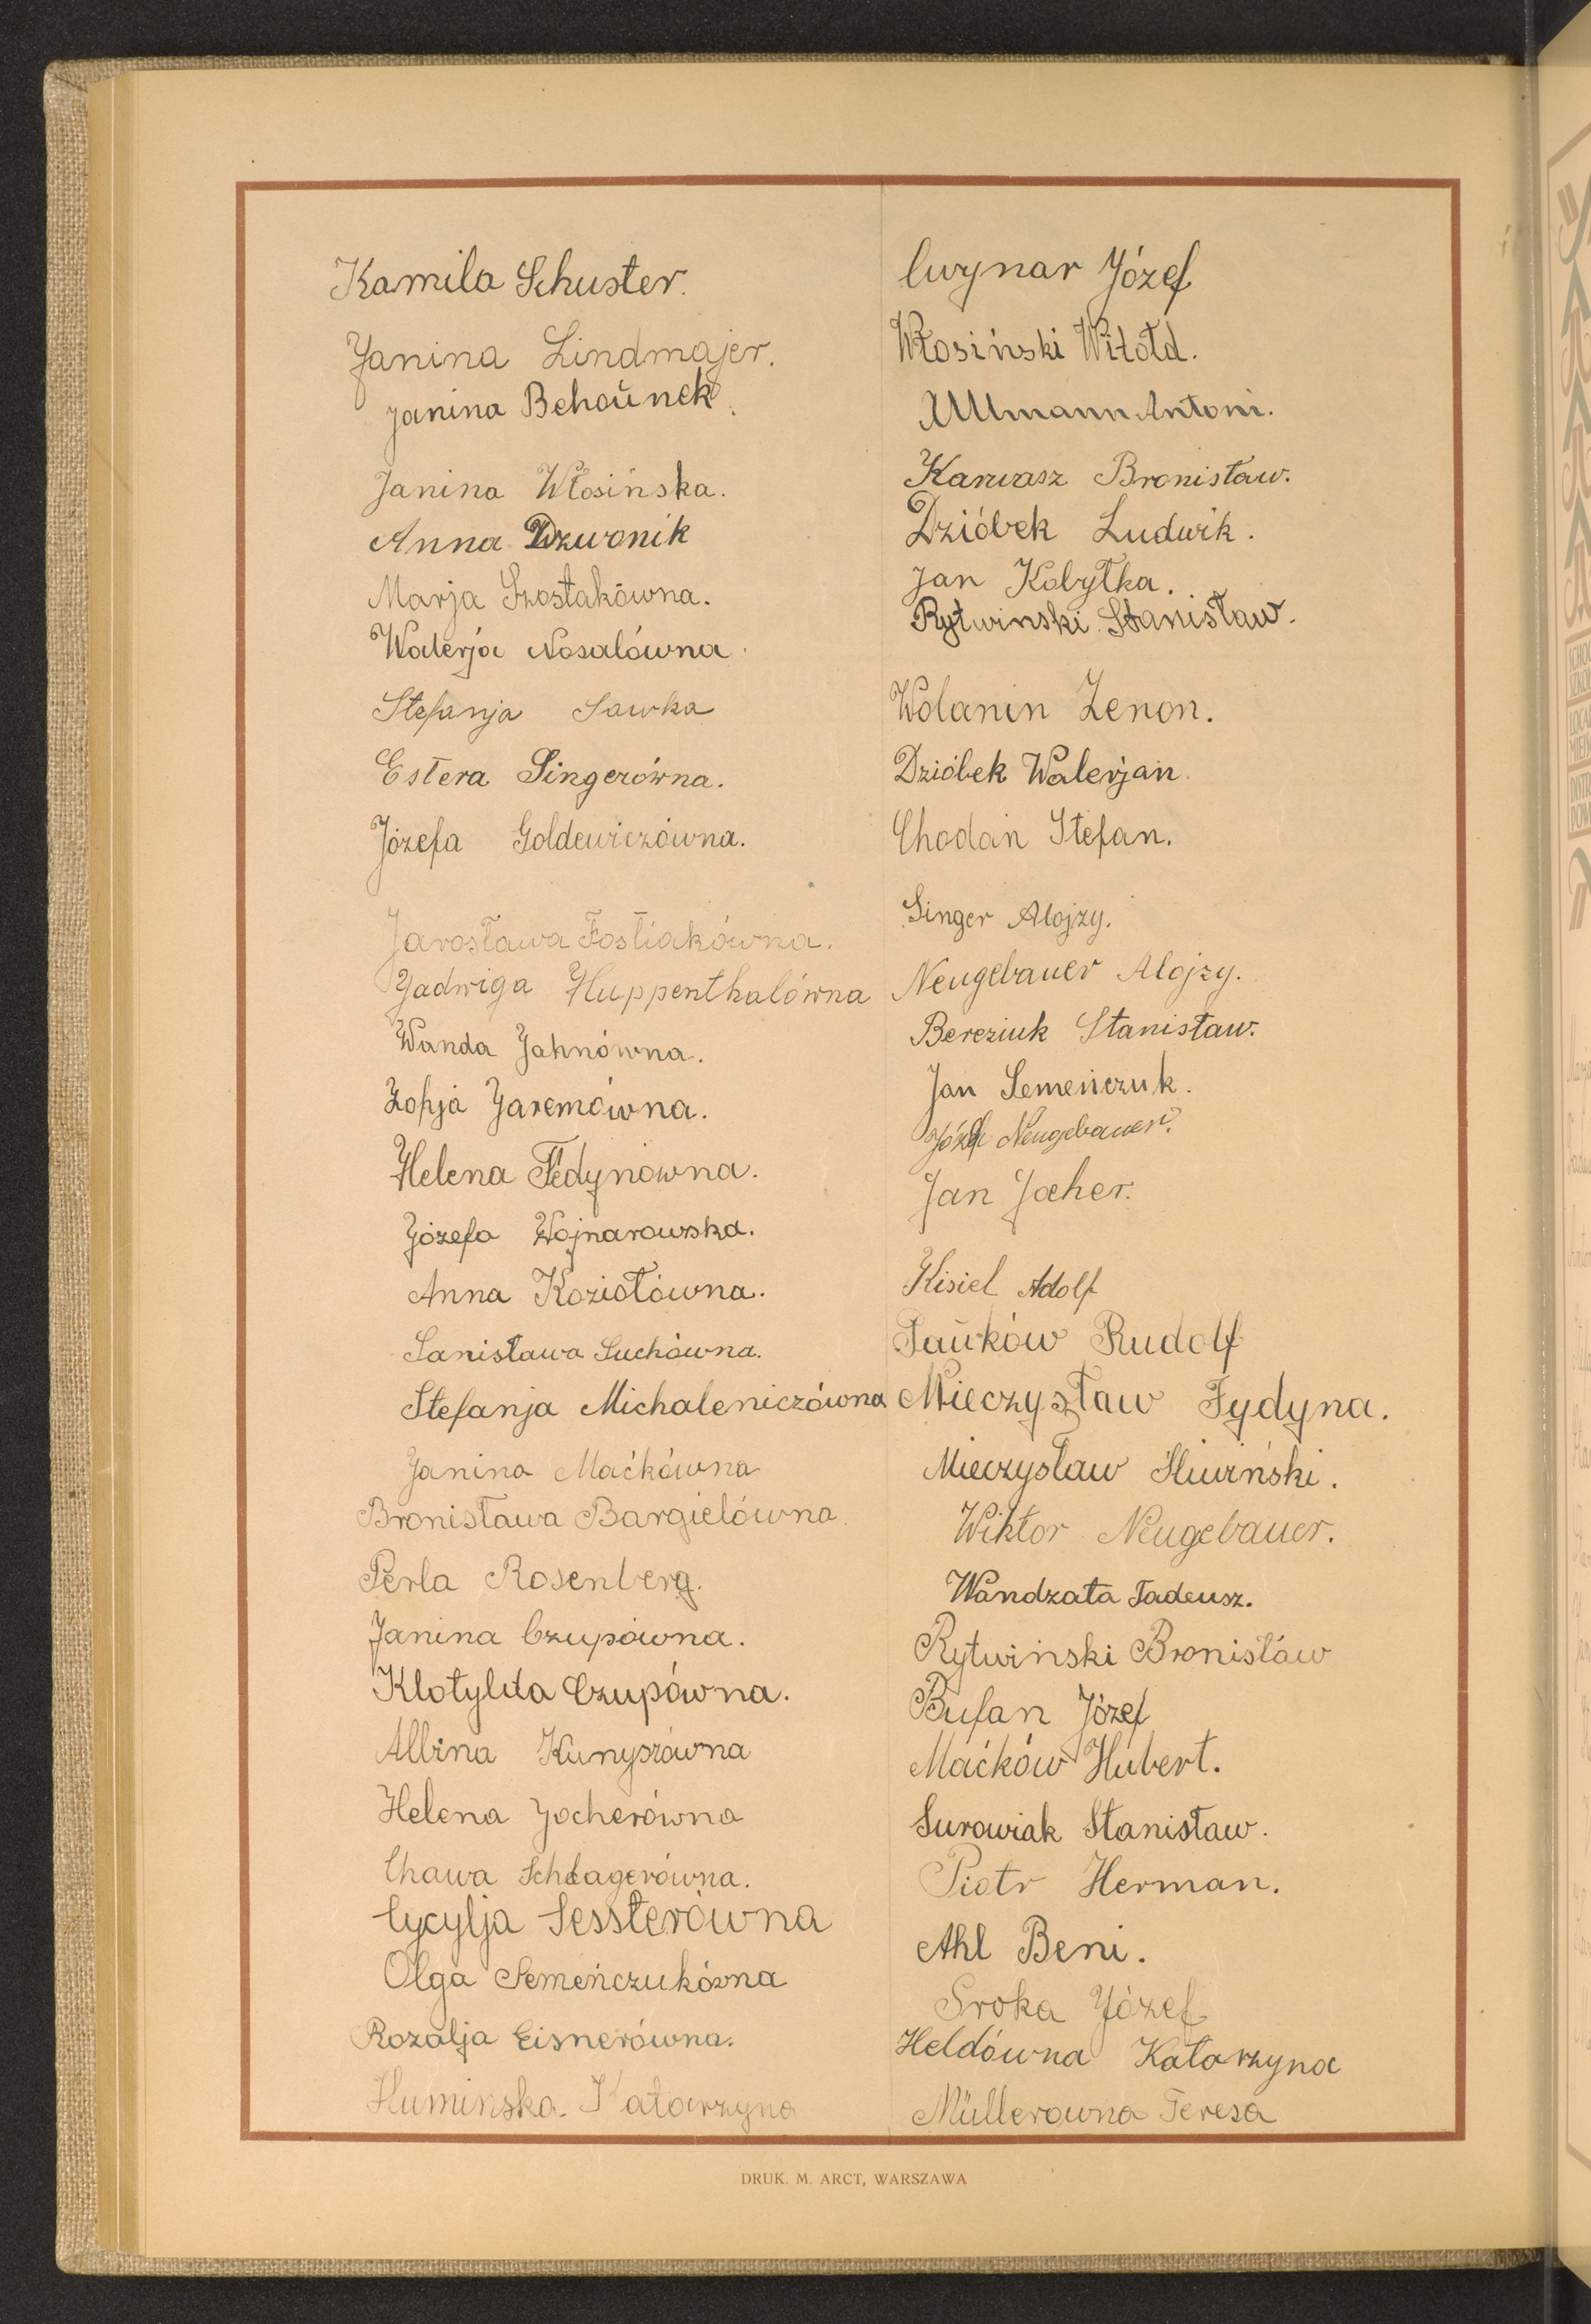 Kamila Schuster.
Janina Lindmajer.
Janina Behounek.
Janina Włosińska.
Anna Dzwonik
Marja Szostakówna.
Walerja Nosalówna.
Stefanja Sawka
Estera Singerówna.
Józefa Goldewiczówna.
Jarosława Fostiakówna.
Jadwiga Huppenthalówna
Wanda Jahnówna.
Zofja Jaremówna.
Helena Fedynówna.
Józefa Wojnarowska.
Anna Koziołówna.
Sanisława Suchówna.
Stefanja Michaleniczówna
Janina Maćkówna
Bronisława Bargielówna.
Perla Rosenberg.
Janina Czupówna.
Klotylda Czupówna.
Albina Kunyszówna
Helena Jocherówna
Chawa Schlagerówna.
Cycylja Sessterówna
Olga Semeńczukówna
Rozalja Eisnerówna.
Huminska Katarzyna
Cwynar Józef
Włosiński Witołd.
Ullmann Antoni.
Karwasz Bronisław.
Dzióbek Ludwik.
Jan Kobyłka.
Rytwinski Stanisław.
Wolanin Zenon.
Dzióbek Walerjan.
Chodań Stefan.
Singer Alojzy.
Neugebauer Alojzy.
Bereziuk Stanisław.
Jan Semeńczuk.
Józef Neugebauer.
Jan Jocher.
Kisiel Adolf
Pańków Rudolf
Mieczysław Fydyna.
Mieczysław Śliwiński.
Wiktor Neugebauer.
Wandzała Tadeusz.
Rytwiński Bronisław
Bufan Józef
Maćków Hubert.
Surowiak Stanisław.
Piotr Herman.
Ahl Beni.
Sroka Józef
Heldówna Katarzyna
Müllerowna Teresa
DRUK. M. ARCT, WARSZAWA